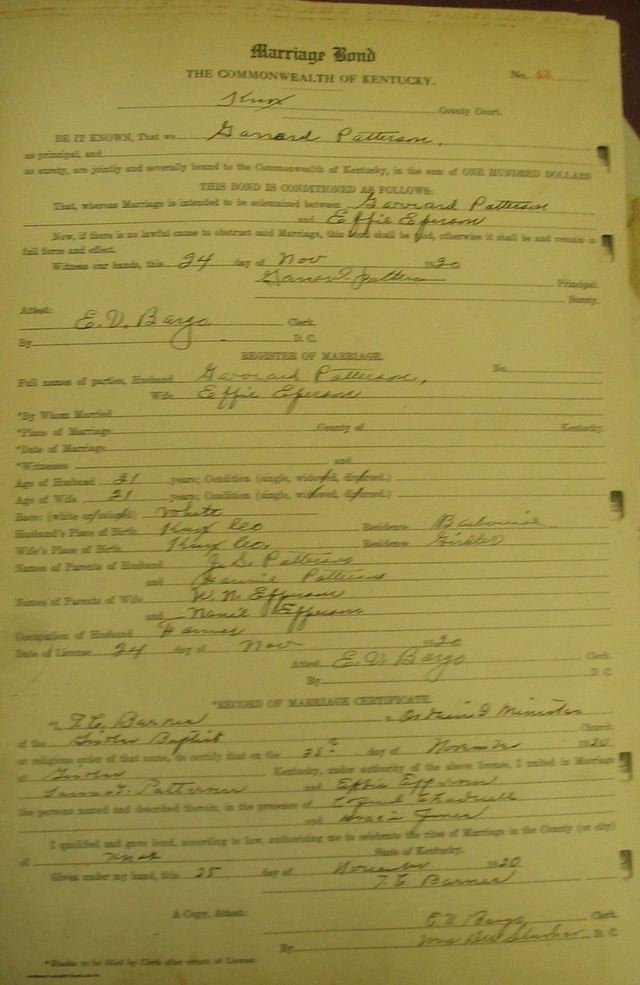 Marriage Bond
THE COMMONWEALTH OF KENTUCKY.
No. 42
Knox County Court.
BE IT KNOWN, That we Garrard Patterson,
as principal, and
as surety, are jointly and severally bound to the Commonwealth of Kentucky, in the sum of ONE HUNDRED DOLLARS
THIS BOND IS CONDITIONED AS FOLLOWS:
That, whereas Marriage is intended to be solemnized between Garrard Patterson
and Effie Eperson
Now, if there is no lawful cause to obstruct said Marriage, this bond shall be void, otherwise it shall be and remain in
full force and effect.
Witness our hands, this 24 day of Nov 1920
Principal.
Surety.
Attest:
E. V. Bargo Clerk.
By D. C.
REGISTER OF MARRIAGE.
No.
Full names of parties, Husband Garrard Patterson,
Wife Effie Eperson
*By Whom Married
*Place of Marriage County of Kentucky.
*Date of Marriage
*Witnesses and
Age of Husband 21 years; Condition (single, widowed, divorced.)
Age of Wife 21 years; Condition (single, widowed, divorced.)
Race: (white or colored) White
Husband's Place of Birth Knox Co Residence
Wife's Place of Birth Knox Co. Residence Girdler
Names of Parents of Husband J. S. Patterson
and Patterson
Names of Parents of Wife W. N. Epperson
and Epperson
Occupation of Husband Farmer
Date of License 24 day of Nov 1920
Attest E. V. Bargo Clerk.
By D. C.
*RECORD OF MARRIAGE CERTIFICATE.
I, T. E. Barner a Ordained Minister
of the Girdler Baptist Church,
or religious order of that name, do certify that on the 25th day of November 1920
at Girdler Kentucky, under authority of the above license, I united in Marriage
Patterson and Effie Epperson
the persons named and described therein, in the presence of
and Jones
I qualified and gave bond, according to law, authorizing me to celebrate the rites of Marriage in the County (or city)
of Knox State of Kentucky.
Given under my hand, this 25 day of November 1920
T. E. Barner
A Copy, Attest: E. V. Bargo Clerk.
By D. C.
*Blanks to be filled by Clerk after return of License.